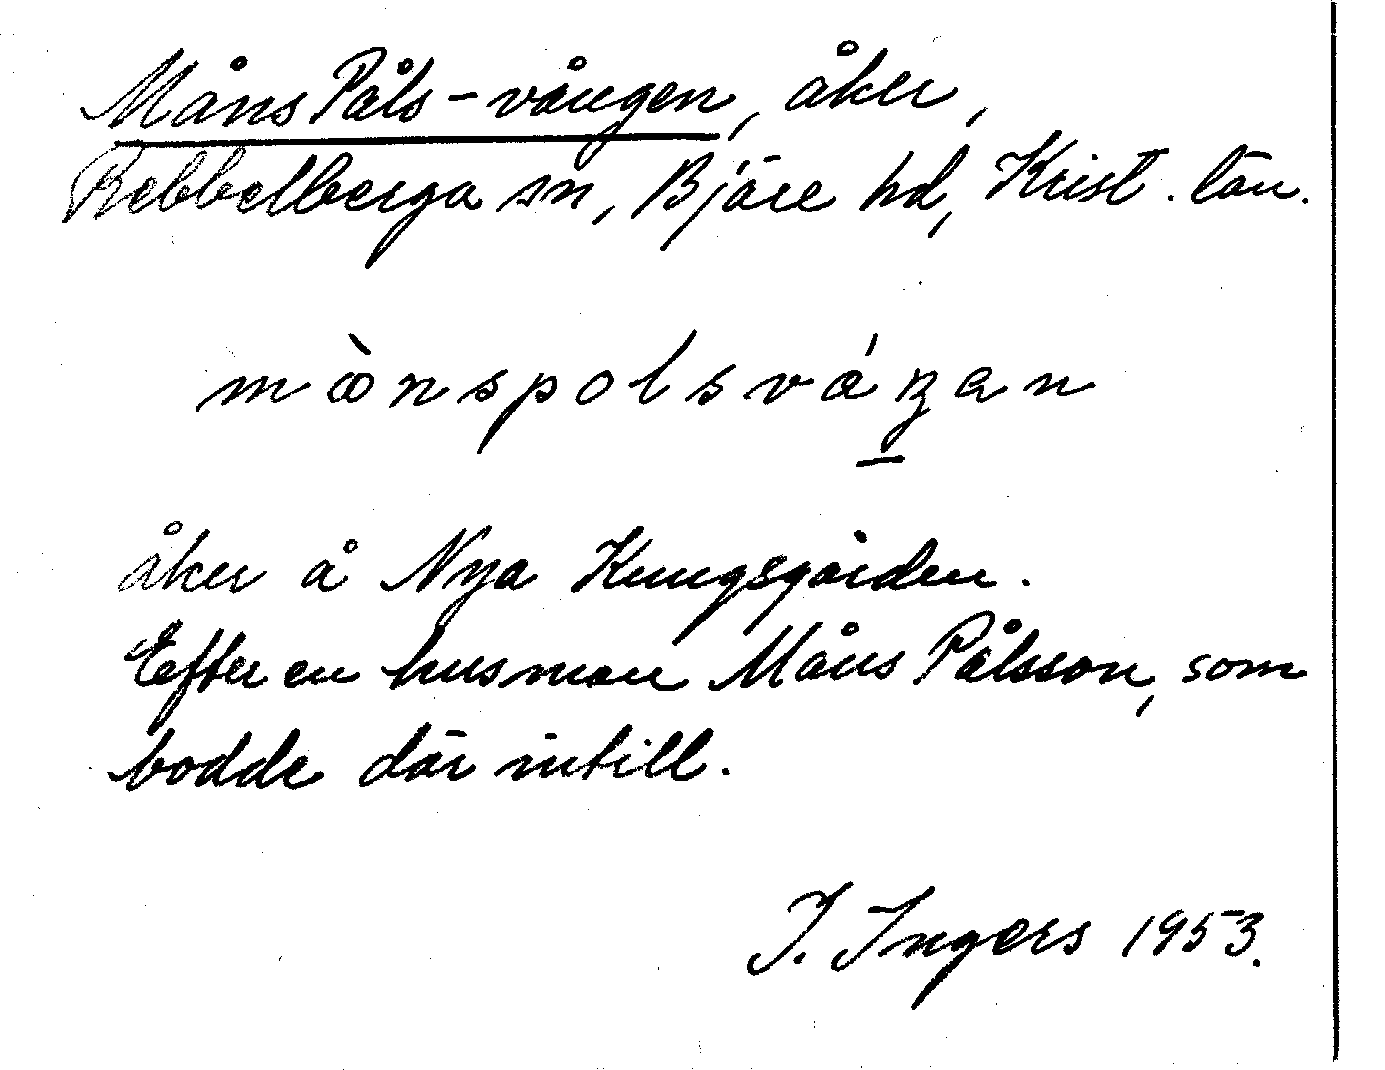 Måns Påls-vången, åker,
Rebbelberga sn, Bjäre hd, Krist. län.
mànspolsváŋan
åker å Nya Kungsgården.
Efter en husman Måns Pålsson, som
bodde där intill.
I. Ingers 1953.